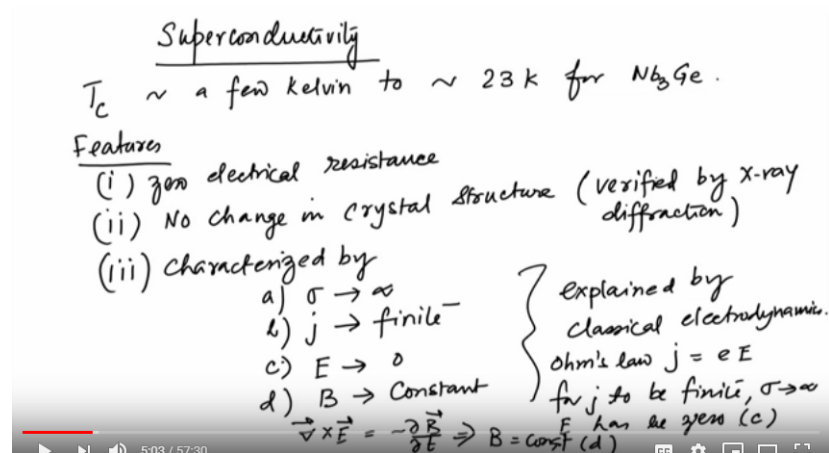 Superconductivity
Tc ~ a few kelvin to ~ 23 K for Nb3Ge.
Features
(i) zero electrical resistance
(ii) No change in crystal structure (verified by X-ray diffraction)
(iii) characterized by
a) σ → ∞
b) j → finite
c) E → 0
d) B → Constant
explained by
classical electrodynamics.
Ohm's law j = e E
for j to be finite, σ→∞
E has be zero (c)
∇ × E = -∂B/∂t ⇒ B = const (d)
5:03 / 57:30